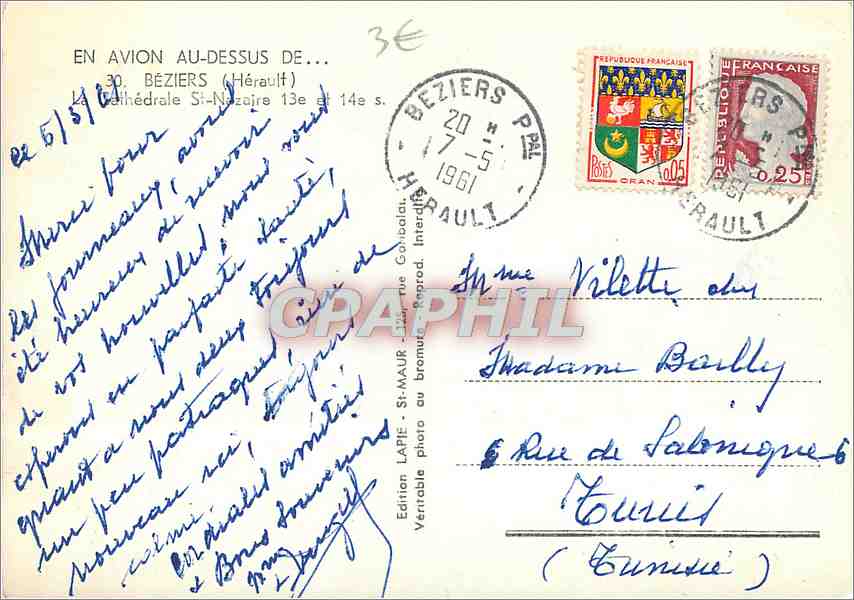 3€
EN AVION AU-DESSUS DE...
30. BÉZIERS (Hérault)
La Cathédrale St-Nazaire 13e et 14e s.
ce 6/5/61
Merci pour
les journeaux, avons
été heureux de recevoir
de vos nouvelles nous vous
esperons en parfaite santé,
quant a nous deux toujours
un peu patraques, rien de
nouveau ici, toujours
calme.
Cordiales amitiés
+ Bons Souvenirs
Edition LAPIE - St-MAUR - 125, rue Gambolat.
Véritable photo au bromure - Reprod. Interdite
BEZIERS PPAL
20 H
17-5
1961
HERAULT
REPUBLIQUE FRANÇAISE
POSTES
0.05
ORAN
REPUBLIQUE FRANÇAISE
0.25
BEZIERS PPAL
1961
HERAULT
CPAPHIL
Mme Vilette chez
Madame Bailly
6 Rue de Salonique 6
Tunis
(Tunisie)